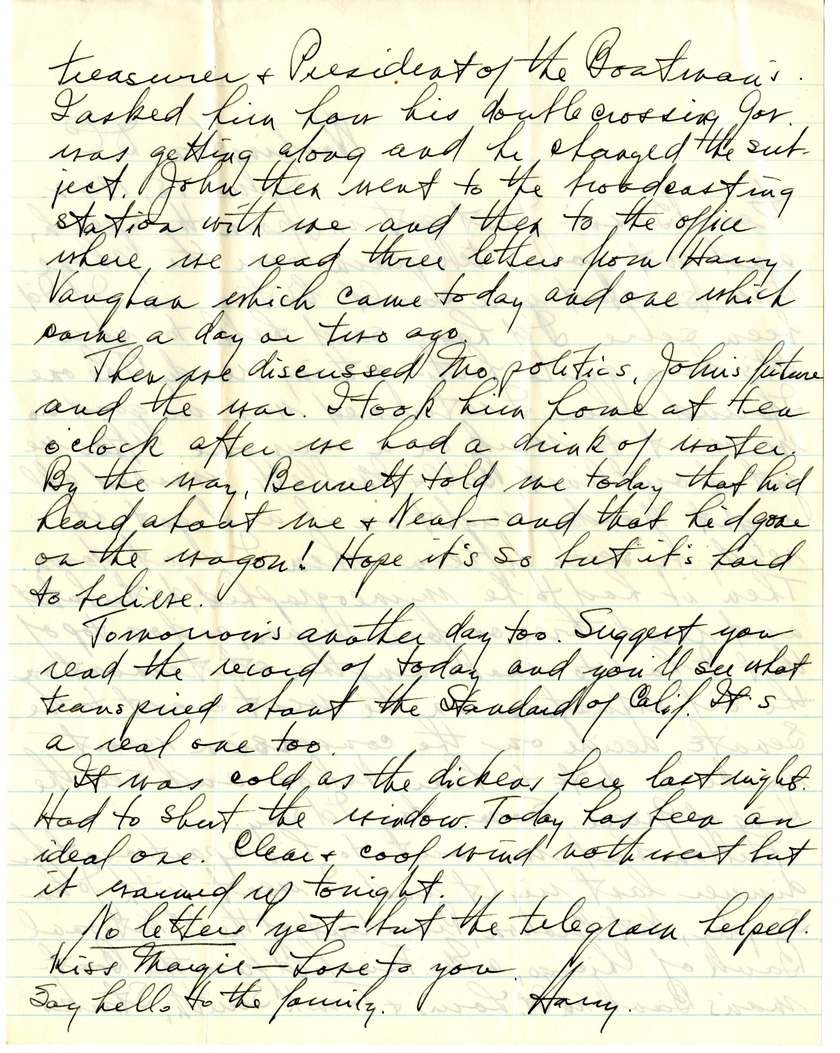 treasurer + President of the Boatman's.
I asked him how his doublecrossing Gov.
was getting along and he changed the sub-
ject. John then went to the broadcasting
station with me and then to the office
where we read three letters from Harry
Vaughan which came today and one which
came a day or two ago.
Then we discussed Mo politics, John's future
and the war. I took him home at ten
o'clock after we had a drink of water.
By the way, Bennett told me today that he'd
heard about me + Neal — and that he'd gone
on the wagon! Hope it's so but it's hard
to believe.
Tomorrow's another day too. Suggest you
read the record of today and you'll see what
transpired about the Standard of Calif. It's
a real one too.
It was cold as the dickens here last night.
Had to shut the window. Today has been an
ideal one. Clear + cool wind nothwest but
it warmed up tonight.
No letter yet — but the telegram helped.
Kiss Margie — Love to you.
Say hello to the family. Harry.